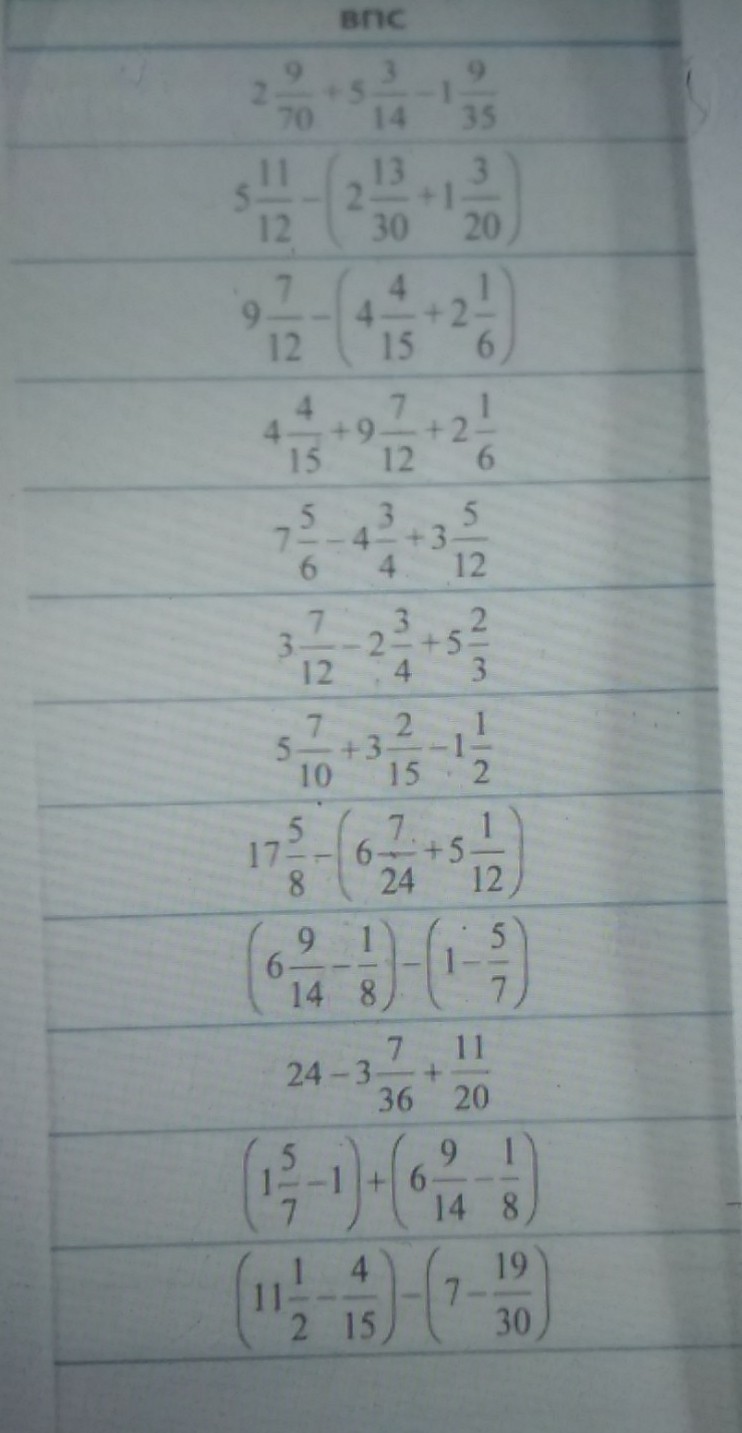 ВПС
2 9/70 + 5 3/14 − 1 9/35
5 11/12 − (2 13/30 + 1 3/20)
9 7/12 − (4 4/15 + 2 1/6)
4 4/15 + 9 7/12 + 2 1/6
7 5/6 − 4 3/4 + 3 5/12
3 7/12 − 2 3/4 + 5 2/3
5 7/10 + 3 2/15 − 1 1/2
17 5/8 − (6 7/24 + 5 1/12)
(6 9/14 − 1/8) − (1 − 5/7)
24 − 3 7/36 + 11/20
(1 5/7 − 1) + (6 9/14 − 1/8)
(11 1/2 − 4/15) − (7 − 19/30)